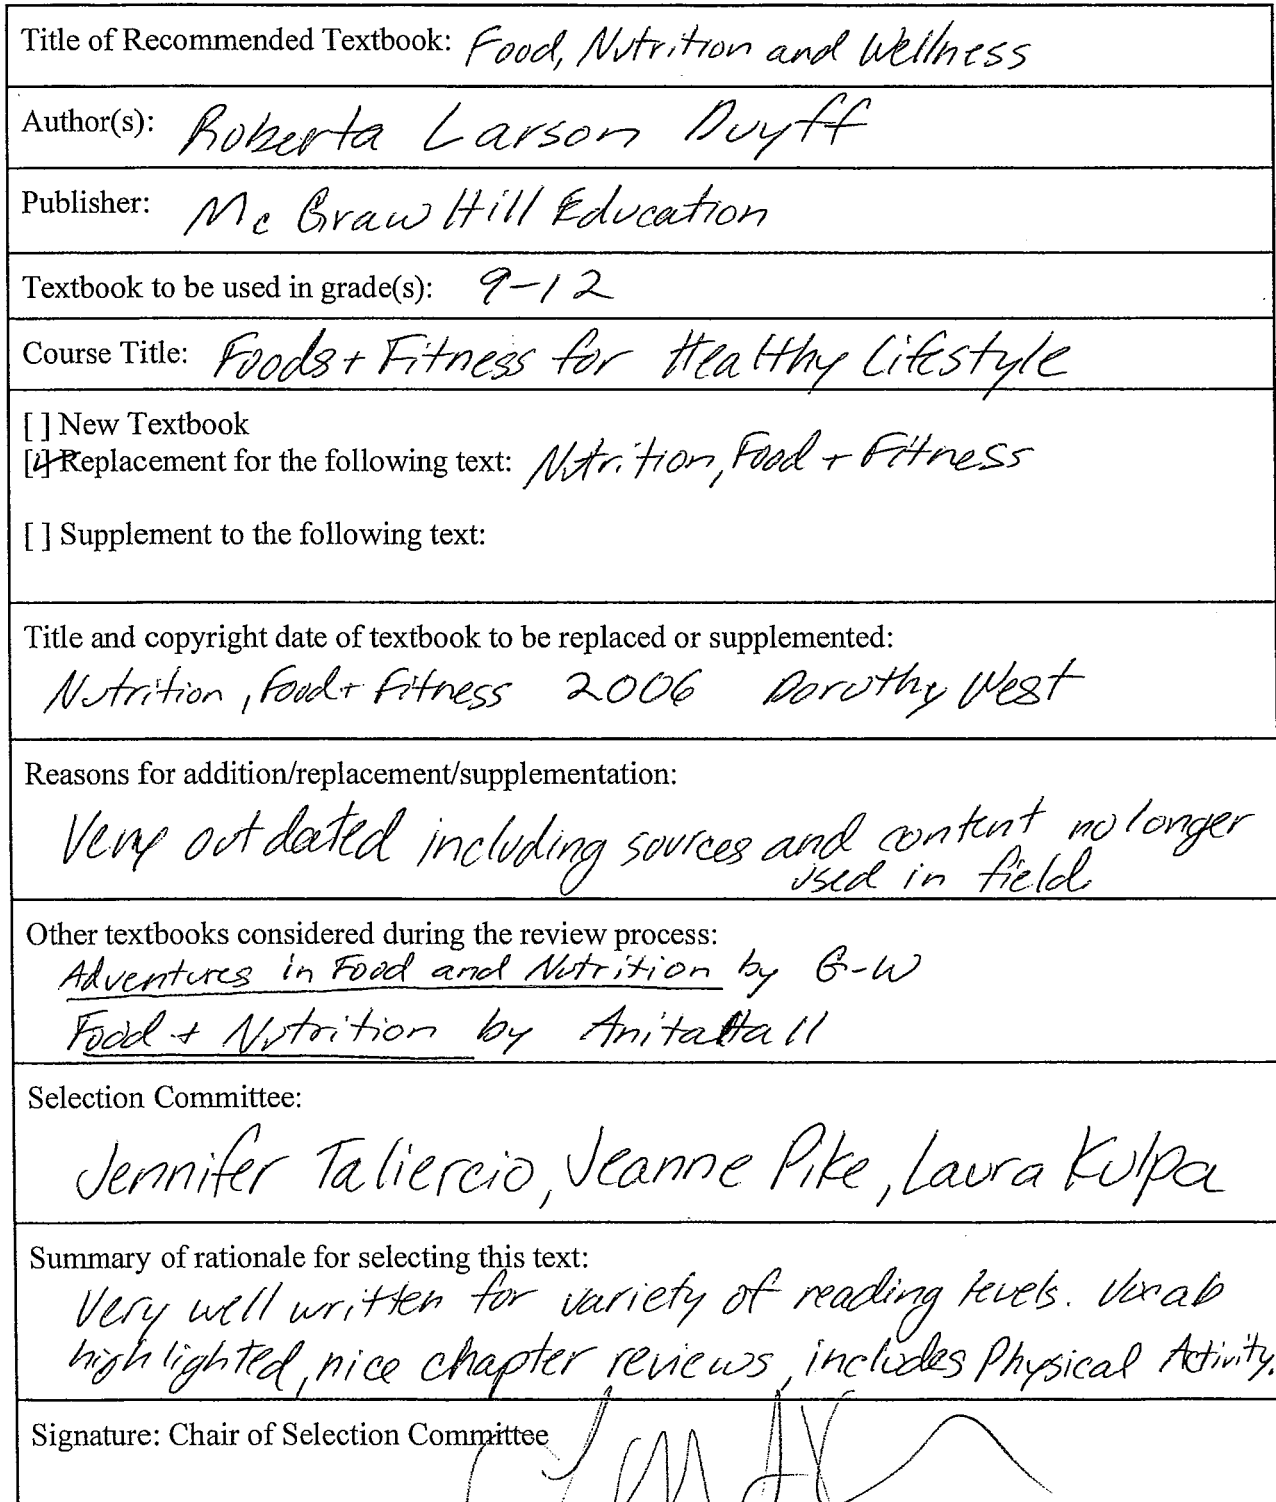 Title of Recommended Textbook: Food, Nutrition and Wellness
Author(s): Roberta Larson Duyff
Publisher: Mc Graw Hill Education
Textbook to be used in grade(s): 9-12
Course Title: Foods + Fitness for Healthy Lifestyle
[ ] New Textbook
[✓] Replacement for the following text: Nutrition, Food + Fitness
[ ] Supplement to the following text:
Title and copyright date of textbook to be replaced or supplemented:
Nutrition, Food + Fitness 2006 Dorothy West
Reasons for addition/replacement/supplementation:
Very outdated including sources and content no longer
used in field.
Other textbooks considered during the review process:
Adventures in Food and Nutrition by G-W
Food + Nutrition by Anita Hall
Selection Committee:
Jennifer Taliercio, Jeanne Pike, Laura Kulpa
Summary of rationale for selecting this text:
Very well written for variety of reading levels. Vocab
highlighted, nice chapter reviews, includes Physical Activity.
Signature: Chair of Selection Committee